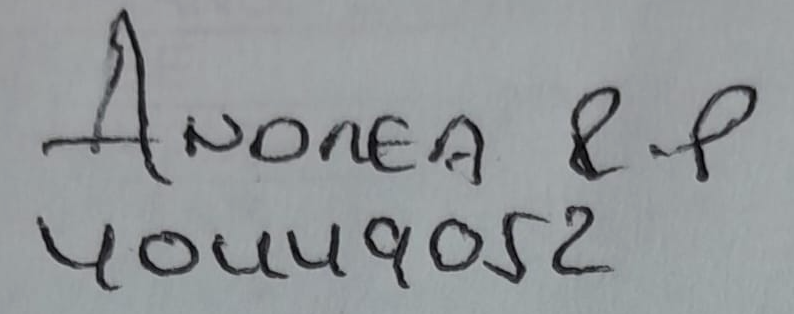 ANDREA R.P
40449052